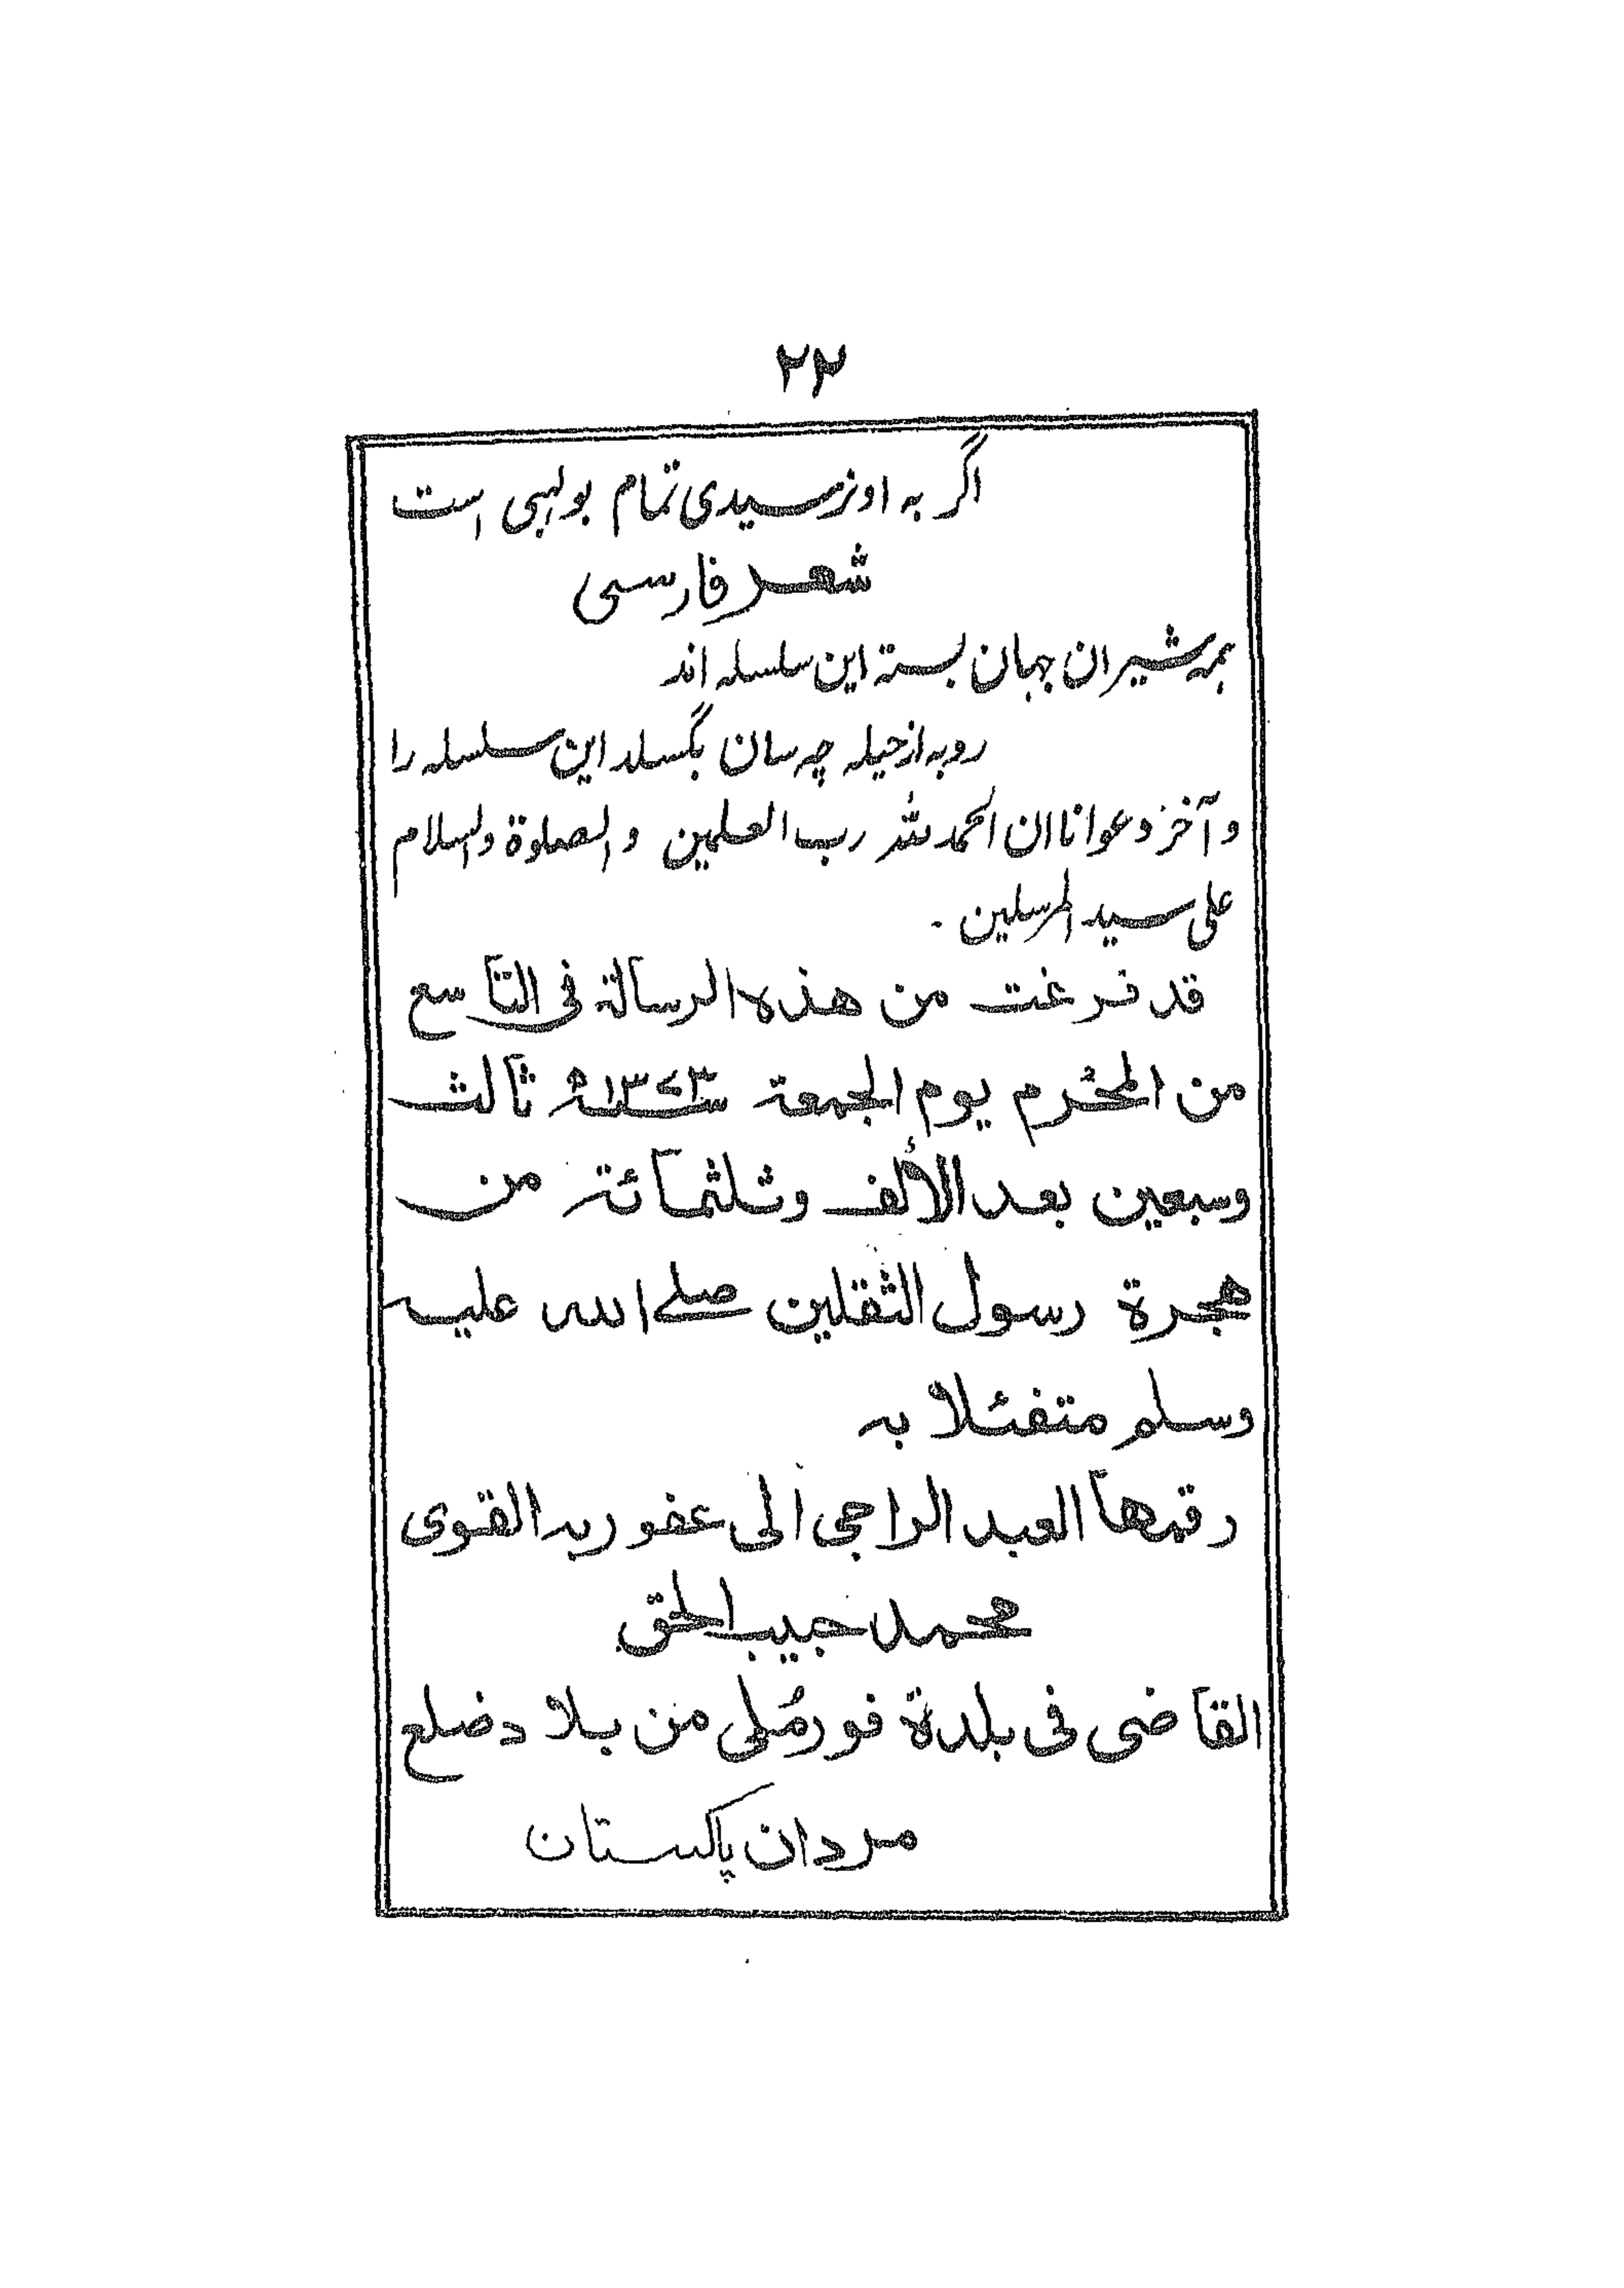 ٢٢
اگر به او نرسیدی تمام بولہبی است
شعر فارسی
ہمہ شیران جہان بستۂ این سلسلہ اند
روبہ از حیلہ چہ سان بگسلد این سلسلہ را
و آخر دعوانا ان الحمد للّٰہ رب العلمین والصلوة والسلام
علی سید المرسلین ۔
قد فرغت من هذه الرسالة فی التاسع
من المحرم یوم الجمعة سنة ١٣٧٣ ثالث
وسبعین بعد الألف وثلثمائة من
هجرة رسول الثقلین صلے اللہ علیہ
وسلم متفئلا به
رقمها العبد الراجی الی عفو ربه القوی
محمد حبیب الحق
القاضی فی بلدة فورمُلی من بلاد ضلع
مردان پاکستان